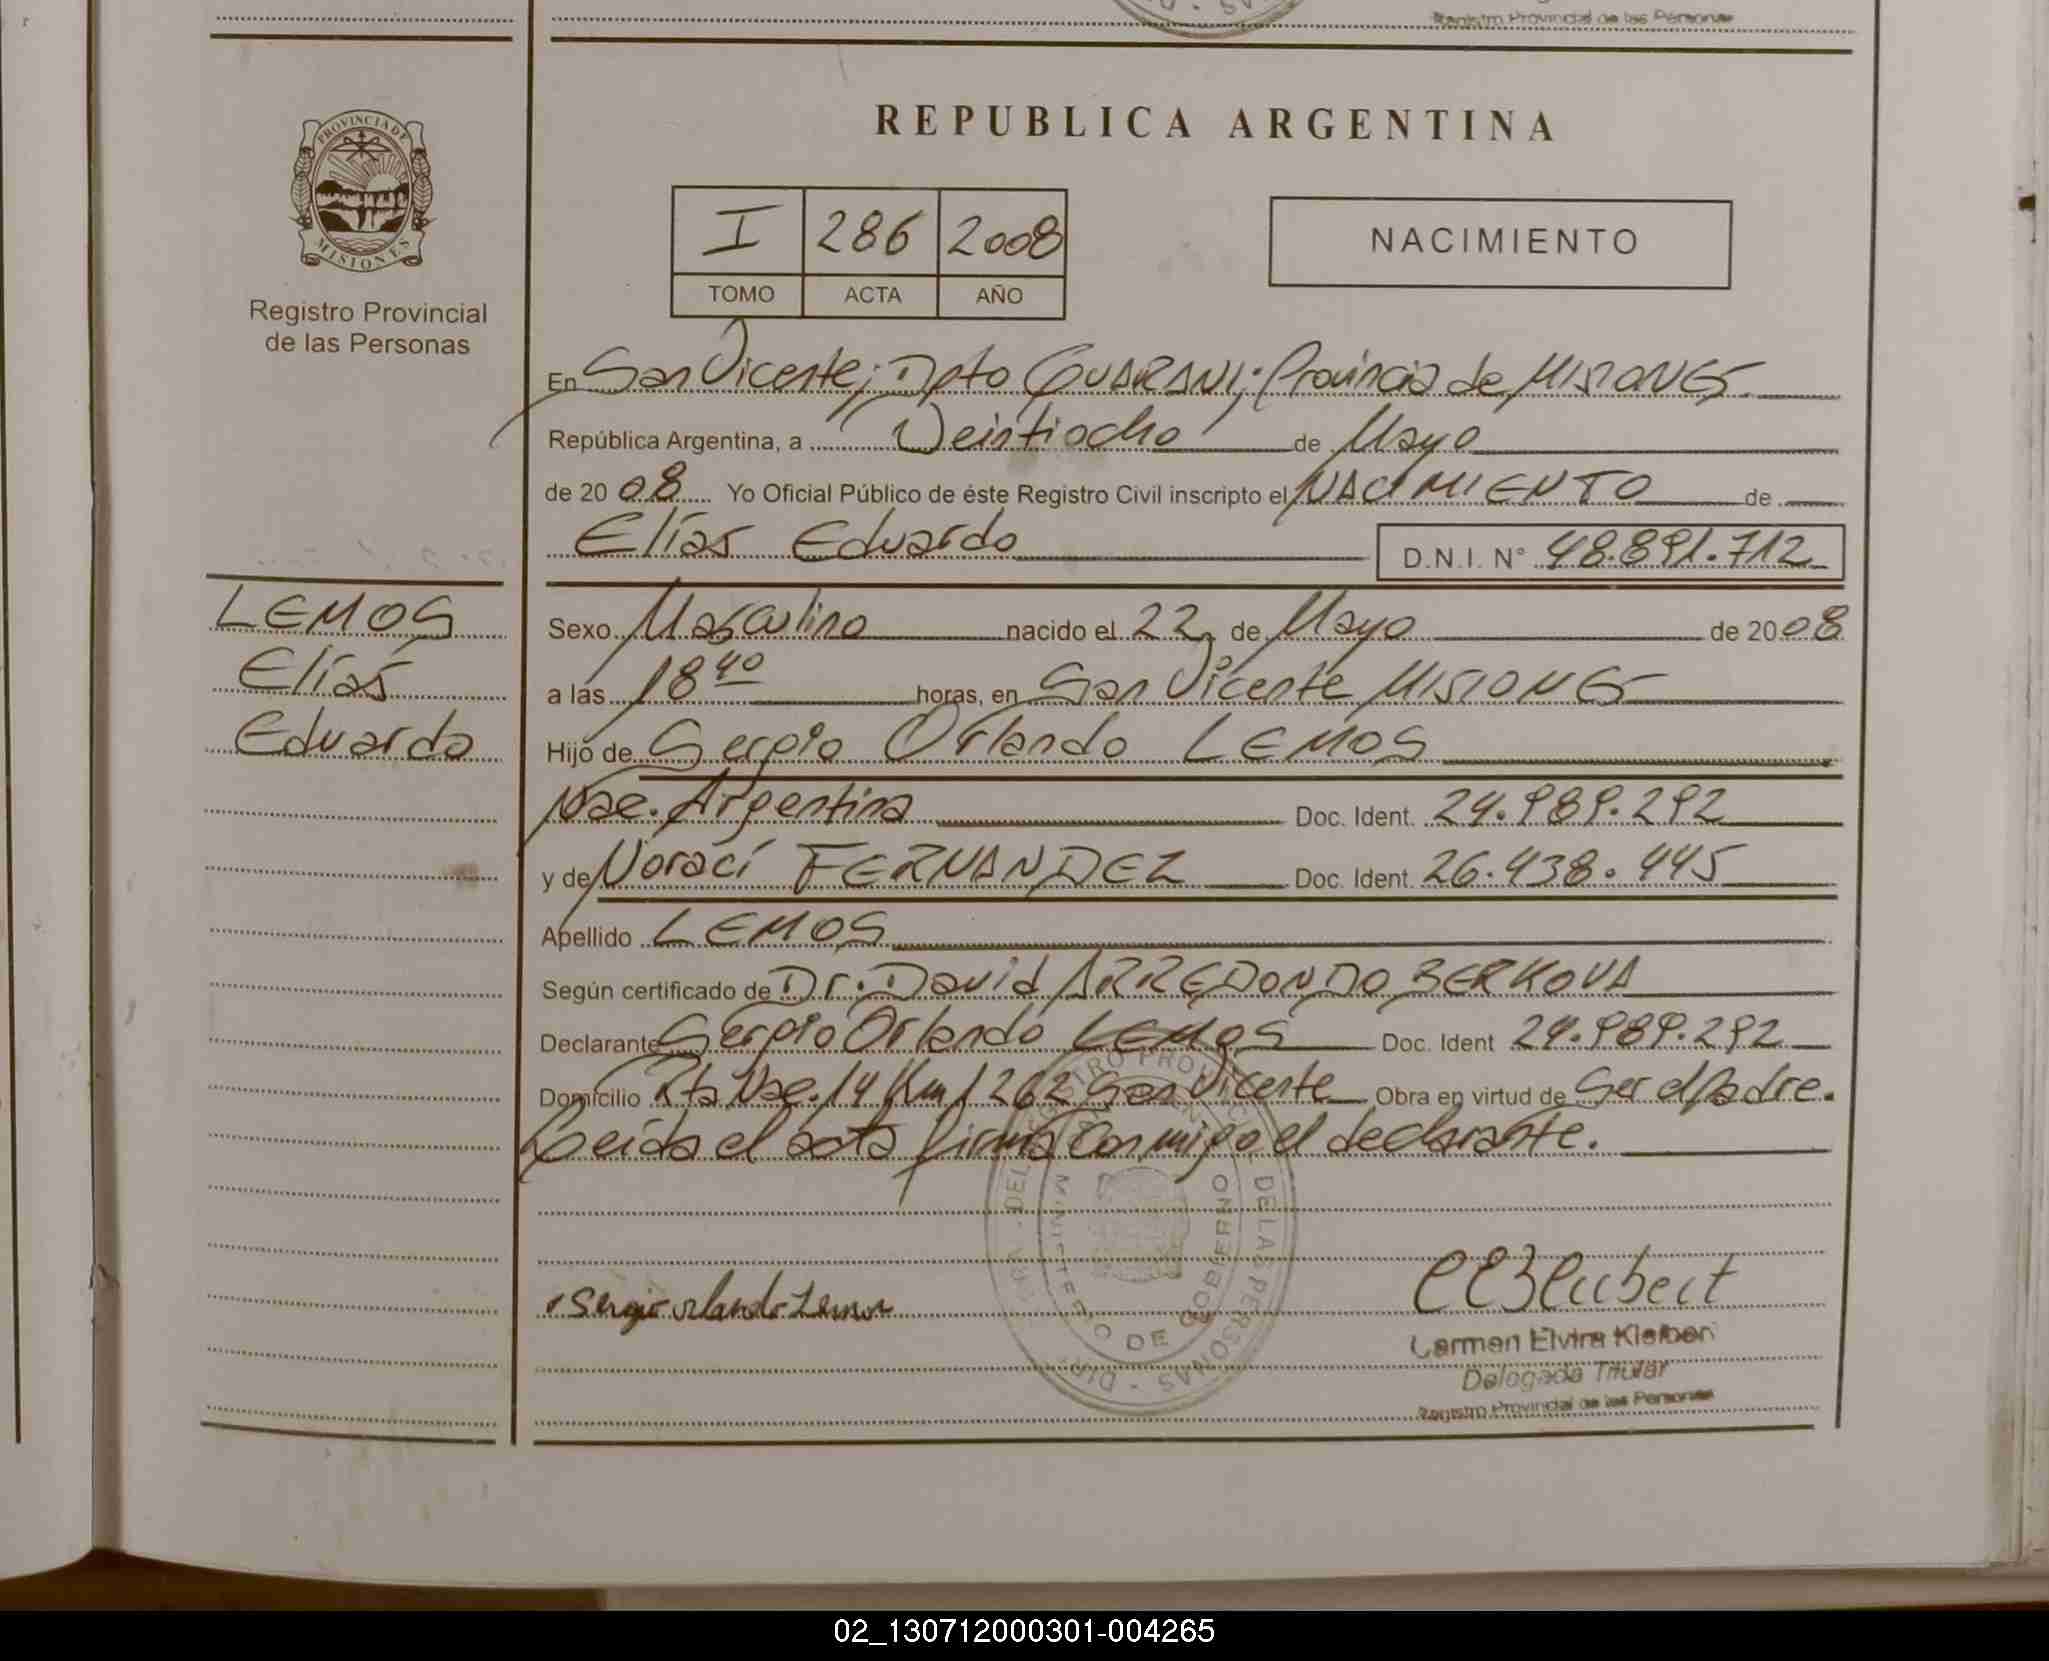 Registro Provincial de las Personas
PROVINCIA DE
MISIONES
Registro Provincial
de las Personas
REPUBLICA ARGENTINA
I 286 2008
TOMO ACTA AÑO
NACIMIENTO
En San Vicente; Dpto GUARANI; Provincia de MISIONES
República Argentina, a Veintiocho de Mayo
de 2008 Yo Oficial Público de éste Registro Civil inscripto el NACIMIENTO de
Elías Eduardo D.N.I. N° 48.891.712
LEMOS
Elías
Eduardo
Sexo Masculino nacido el 22 de Mayo de 2008
a las 18 40 horas, en San Vicente MISIONES
Hijo de Sergio Orlando LEMOS
Nac. Argentina Doc. Ident. 24.989.292
y de Noraci FERNANDEZ Doc. Ident. 26.438.445
Apellido LEMOS
Según certificado de Dr. David ARREDONDO BERKOVA
Declarante Sergio Orlando LEMOS Doc. Ident 24.989.292
Domicilio Rta Nac. 14 Km 1262 San Vicente Obra en virtud de Ser el padre.
Leída el acta firma conmigo el declarante.
Sergio orlando Lemos
MINISTERIO DE GOBIERNO
DE LAS PERSONAS
Carmen Elvira Kleiber
Delegada Titular
Registro Provincial de las Personas
02_130712000301-004265